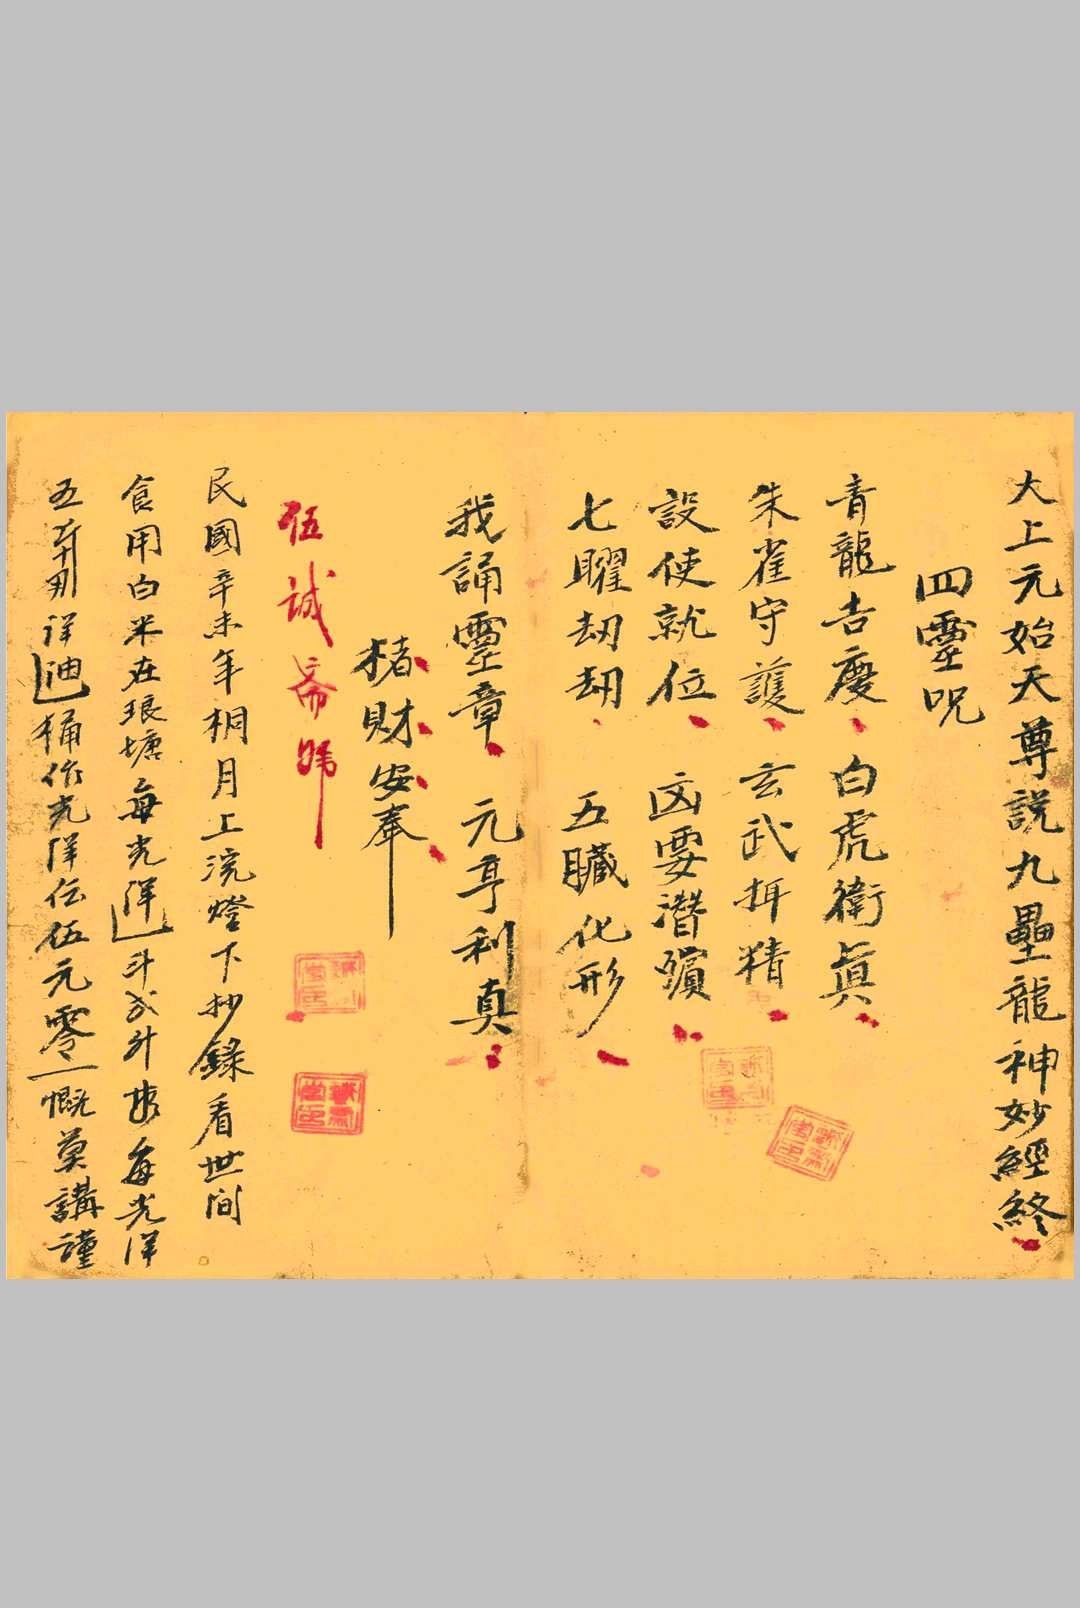 大上元始天尊説九壘龍神妙經終
四靈呪
青龍吉慶 白虎衛眞
朱雀守護 玄武抨精
設使就位 凶要潛殞
七曜刼刼 五臟化形
我誦靈章 元亨利真
楮財安奉
伍誠斋
民國辛未年桐月上浣燈下抄錄看世間
食用白米在琅塘每光洋斗 升 每光洋
五 詳 桶作光洋伝伍元零一慨莫講謹